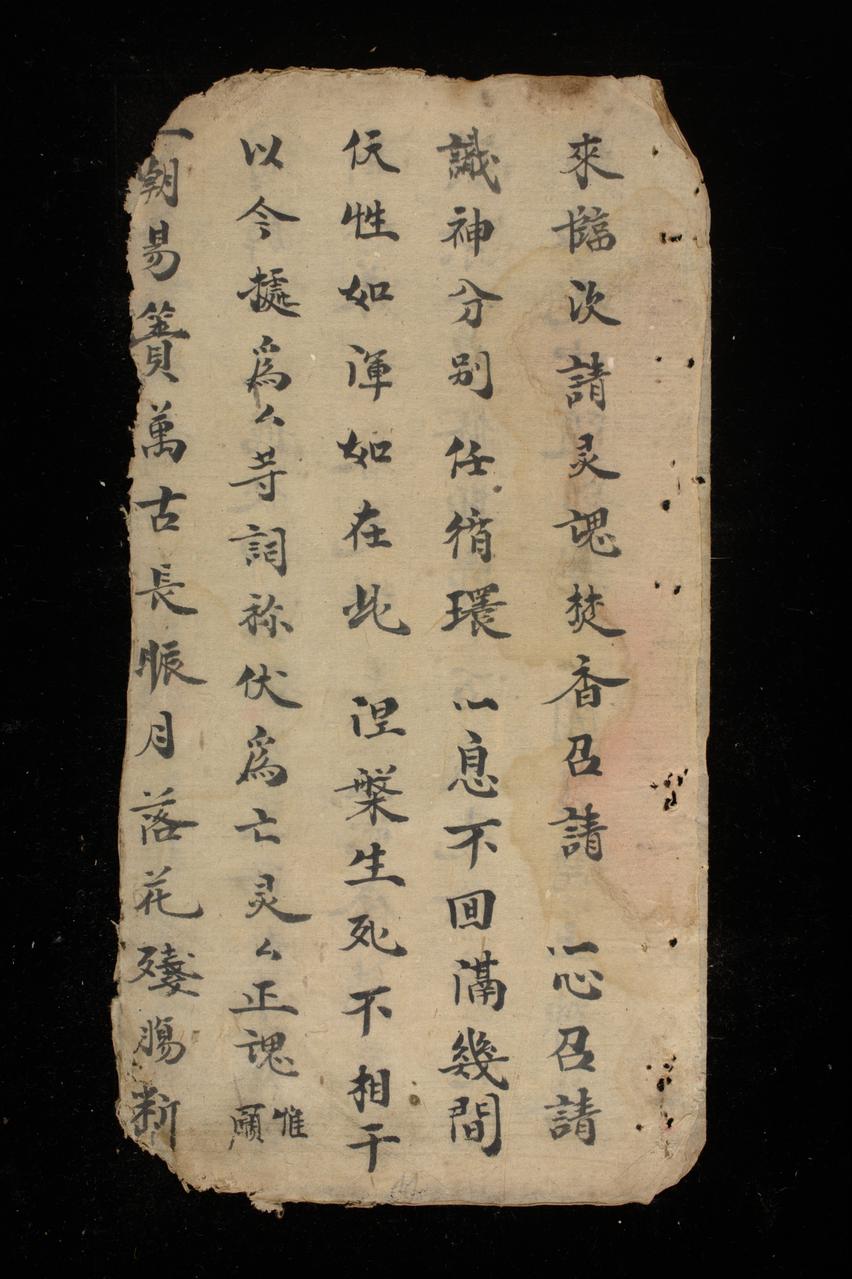 來臨次請灵䰟焚香召請　一心召請
識神分別任循環　一息不囬滿幾間
仸性如渾如在此　涅槃生死不相干
以今㨿爲厶等詞称伏爲亡灵厶正䰟惟願
一朝易簀萬古長眠月落花殘腸断